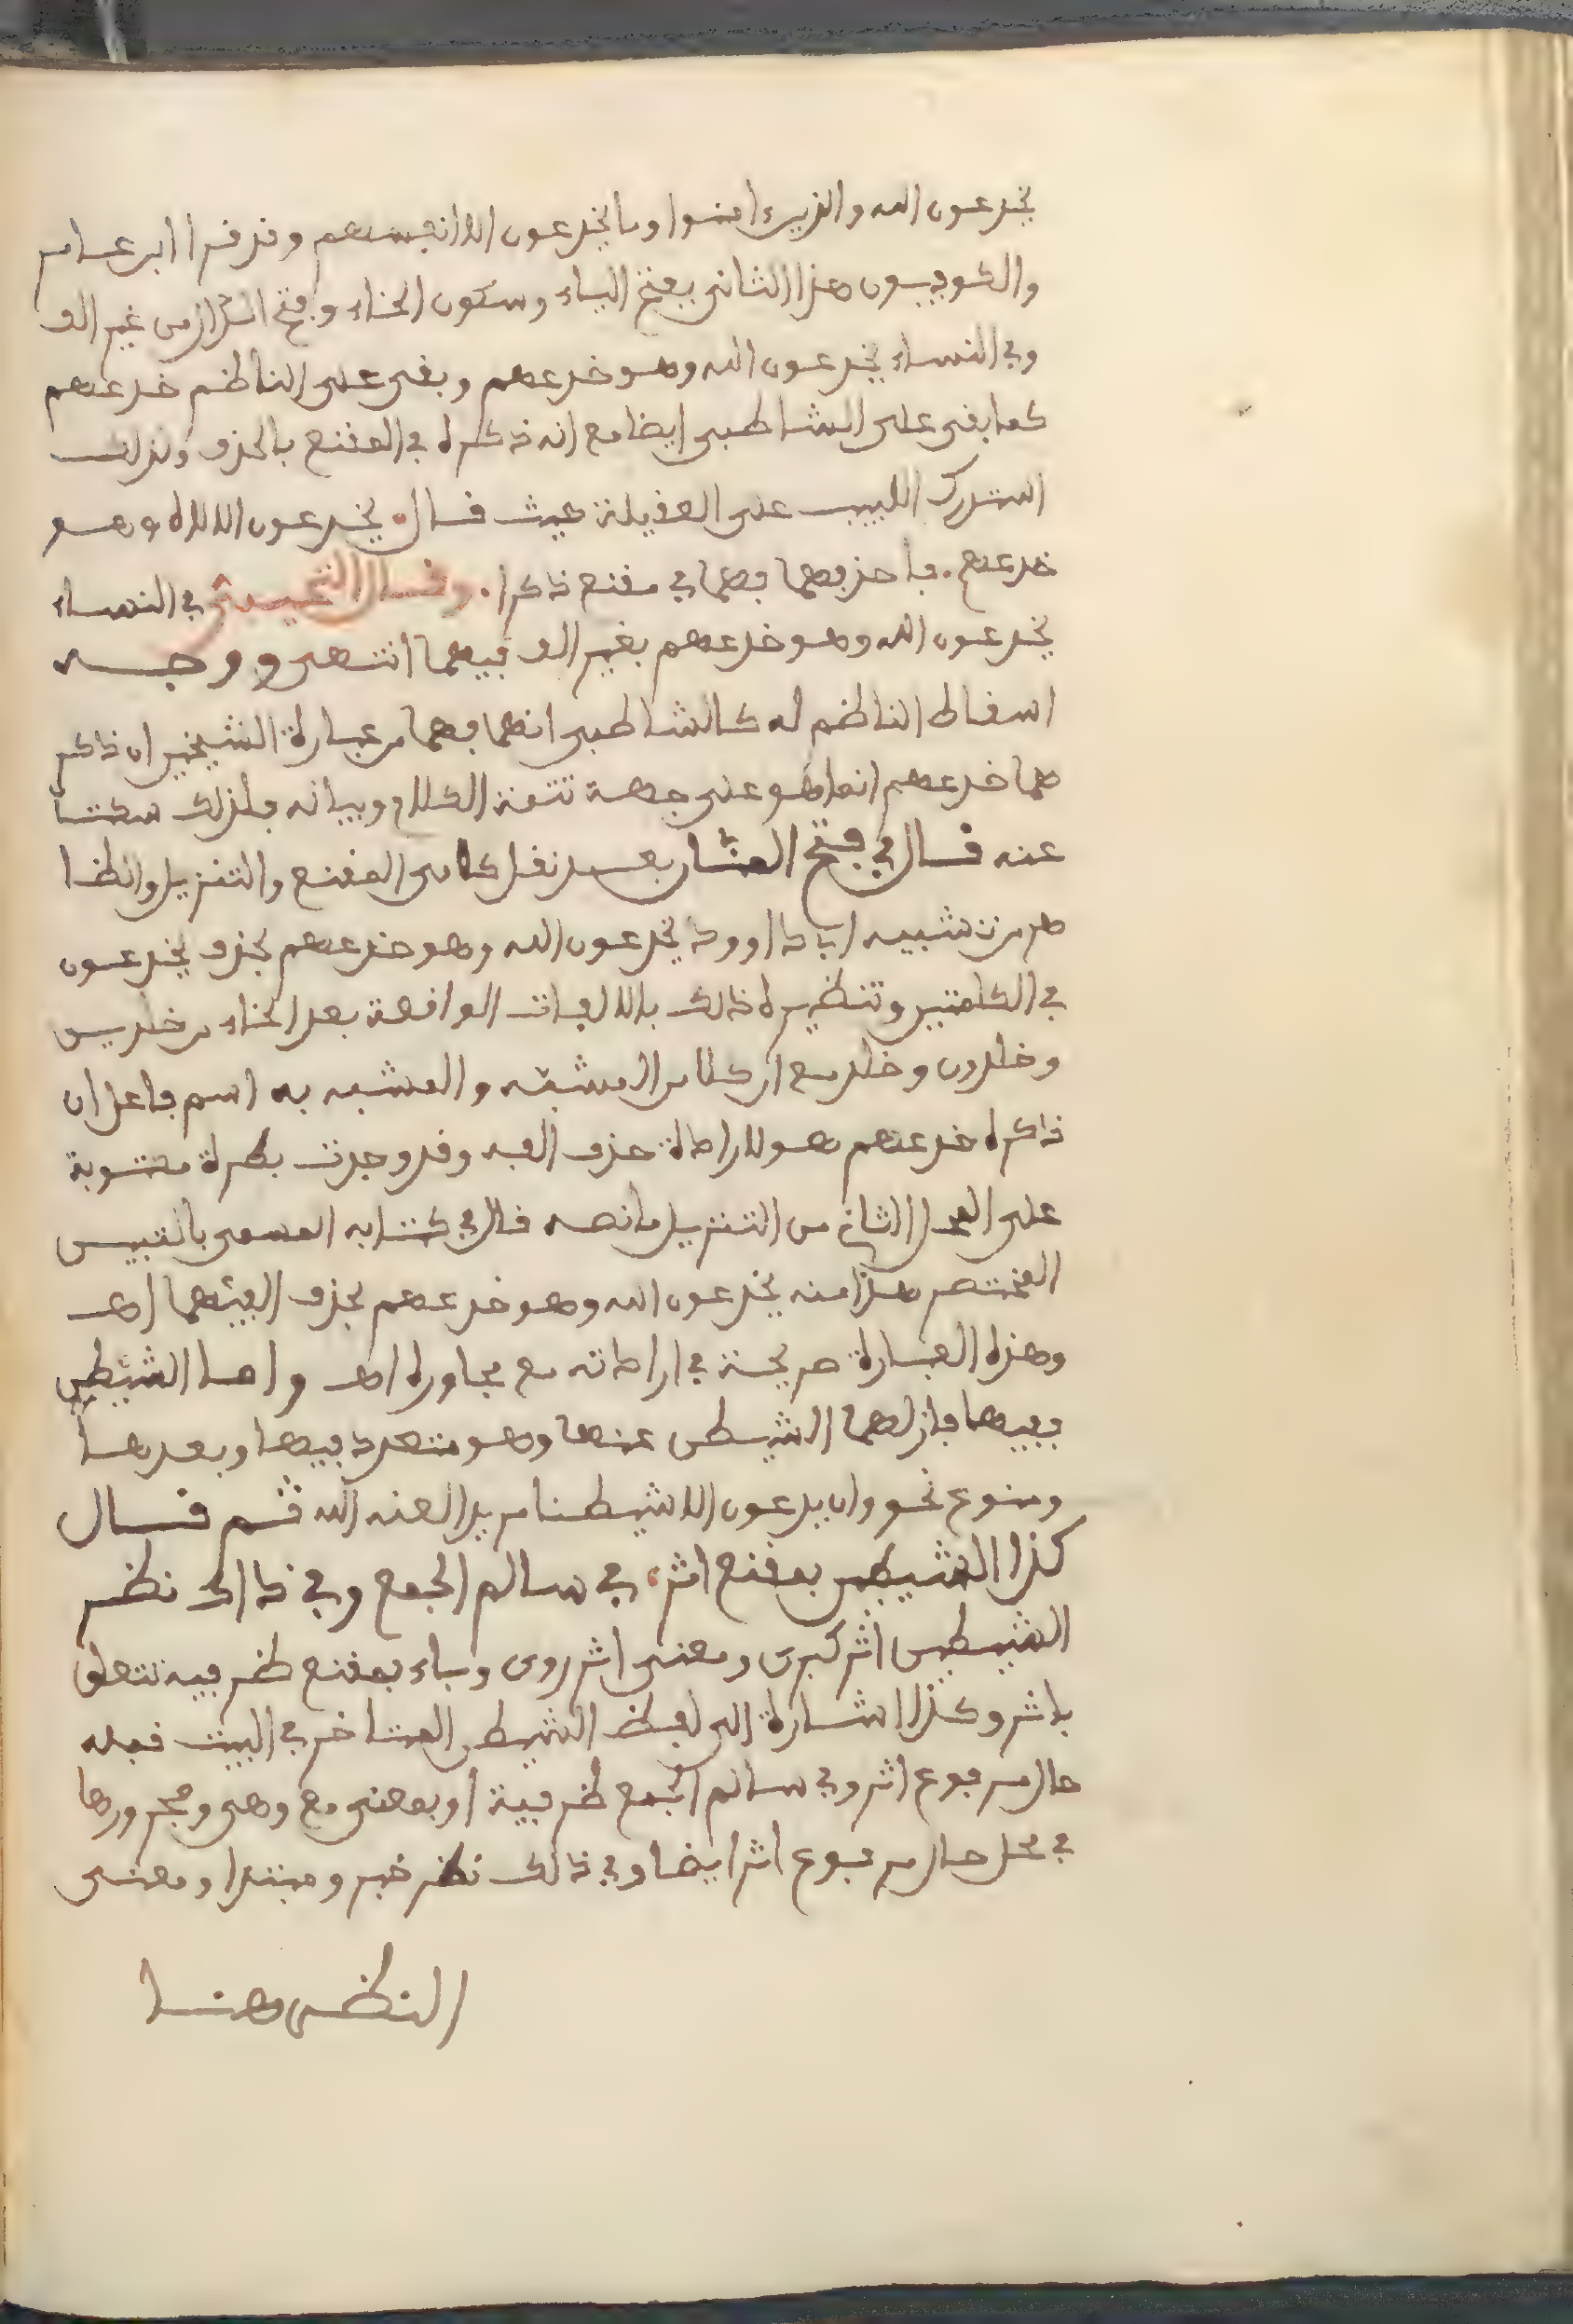 يخدعون الله والذين ءامنوا وما يخدعون الا انفسهم وقد قرا ابن عامر
والكوفيون هذا الثاني بفتح الياء وسكون الخاء وفتح الدال من غير الف
وفي النساء يخدعون الله وهو خدعهم وبقى على الناظم خدعهم
كما بقى على الشاطبى ايضا مع انه ذكره في المقنع بالحذف ولذلك
استدرك اللبيب على العقيلة حيث قال يخدعون الالاه وهو
خدعهم. فاحذفهما فهما في مقنع ذكرا. وقال التجيبي في النساء
يخدعون الله وهو خدعهم بغير الف فيهما انتهى ووجه
اسقاط الناظم له كالشاطبى انهما فهما من عبارة الشيخين ان ذكر
هما خدعهم انما هو على جهة تتمة الكلام وبيانه فلذلك سكتا
عنه قال في فتح المنان بعد نقل كلامى المقنع والتنزيل وانظا
هر من تشبيه ابى داوود يخدعون الله وهو خدعهم بحذف يخدعون
في الكلمتين وتنظيره ذلك بالالفات الواقعة بعد الخاء من خلدين
وخلدون وخلد مع ان كلا من المشبه والمشبه به اسم فاعل ان
ذكره خدعهم هو لارادة حذف الفه وقد وجدت بطرة مكتوبة
على المحل الثاني من التنزيل ما نصه قال في كتابه المسمى بالتبيين
المختصر هذا منه يخدعون الله وهو خدعهم بحذف الفيهما اهـ
وهذه العبارة صريحة في ارادته مع مجاوره اهـ واما الشيطن
ففيها فازلهما الشيطن عنها وهو متعدد فيها وبعدها
ومنوع نحو وان يدعون الا شيطنا مريدا لعنه الله ثم قال
كذا الشيطين بمقنع اثر. في سالم الجمع وفي ذاك نظر
الشيطين اثر كبرى ومعنى اثر روى وباء بمقنع ظرفية تتعلق
باثر وكذا اشارة الى لفظ الشيطن المتاخر في البيت قبله
حال مرفوع اثر وفي سالم الجمع ظرفية او بمعنى مع وهى ومجرورها
في محل حال مرفوع اثر ايضا وفي ذلك نظر خبر ومبتدا ومعنى
النظر هنا